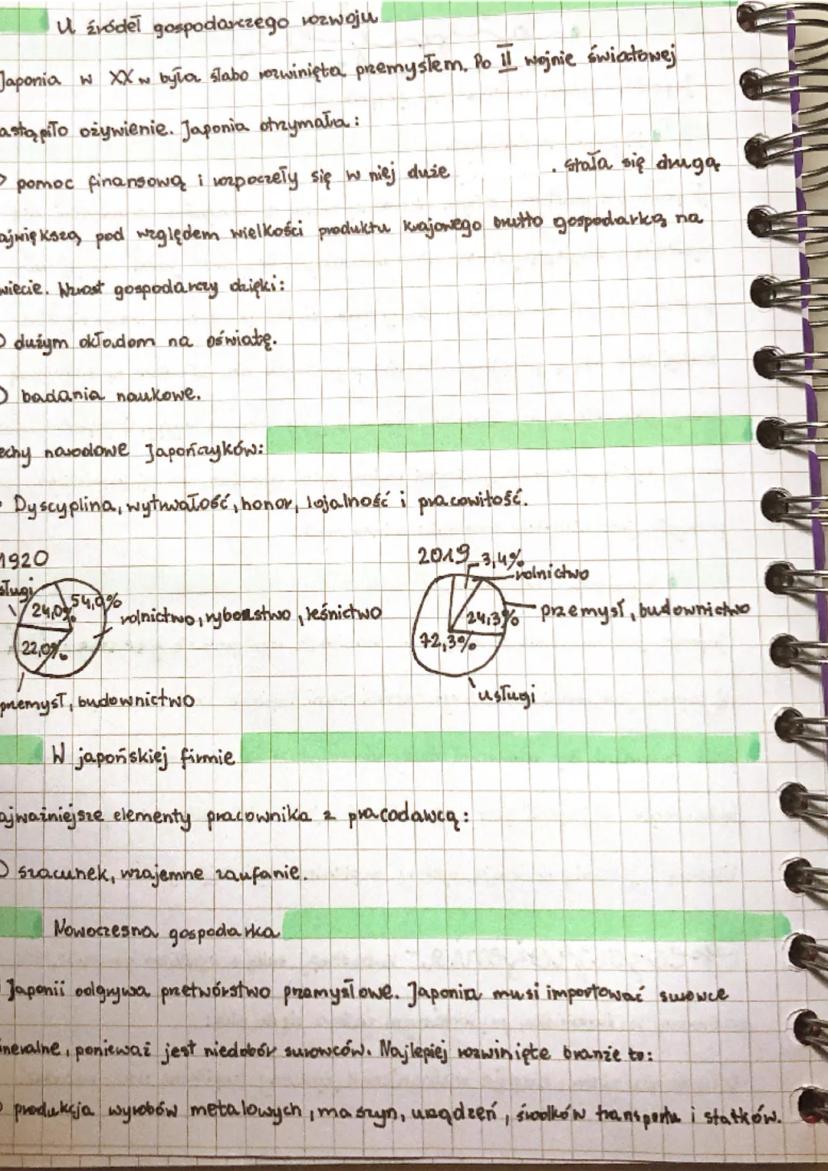 U źródeł gospodarczego rozwoju
Japonia w XX w była słabo rozwinięta przemysłem. Po II wojnie światowej
astąpiło ożywienie. Japonia otrzymała:
pomoc finansową i rozpoczeły się w niej duże . stała się drugą
ajwiększą pod względem wielkości produktu krajowego brutto gospodarką na
wiecie. Wzrost gospodarczy dzięki:
dużym okładom na oświatę.
badania naukowe.
echy narodowe Japończyków:
Dyscyplina, wytrwałość, honor, lojalność i pracowitość.
1920
sługi
24,0% 54,0%
rolnictwo, rybołstwo, leśnictwo
22,0%
przemysł, budownictwo
2019 3,4%
rolnictwo
24,3% przemysł, budownictwo
72,3%
usługi
W japońskiej firmie
ajważniejsze elementy pracownika z pracodawcą:
szacunek, wzajemne zaufanie.
Nowoczesna gospodarka
Japonii odgrywa przetwórstwo przemysłowe. Japonia musi importować surowce
ineralne, ponieważ jest niedobór surowców. Najlepiej rozwinięte branże to:
produkcja wyrobów metalowych, maszyn, urządzeń, środków transportu i statków.